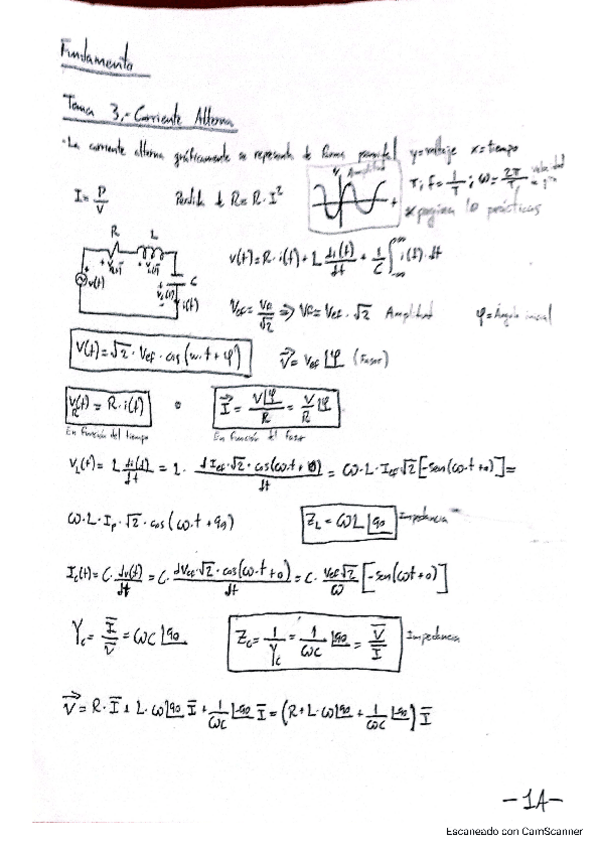 Fundamento
Tema 3.- Corriente Alterna
· La corriente alterna gráficamente se representa de forma y=voltaje x=tiempo
I = P/V Perdida de R = R · I² Amplitud T, f = 1/T ; ω = 2π/T
x pagina 10 prácticas
R L
v(t) C i(t)
v(t) = R · i(t) + L di(t)/dt + 1/C ∫ i(t) · dt
Vef = Vp/√2 ⇒ Vp = Vef · √2 Amplitud φ = Ángulo inicial
V(t) = √2 · Vef · cos(w · t + φ) V⃗ = Vef |φ (Fasor)
v(t)/R = R · i(t) o I⃗ = V|φ/R = V/R |φ
En función del tiempo En función del fasor
V_L(t) = L di(t)/dt = L · d Ief · √2 · cos(ω.t + 0)/dt = ω · L · Ief √2 [-sen(ω.t + 0)] =
ω · L · Ip · √2 · cos(ω.t + 90) Z_L = ωL |90 Impedancia
Ic(t) = C · dv(t)/dt = C · dVef · √2 · cos(ω.t + 0)/dt = C · Vef √2/ω [-sen(ωt + 0)]
Yc = I̅/V̅ = ωC |90 Zc = 1/Yc = 1/ωC |-90 = V̅/I̅ Impedancia
V⃗ = R · I̅ + L · ω |90 I̅ + 1/ωC |-90 I̅ = (R + L · ω |90 + 1/ωC |-90) I̅
-1A-
Escaneado con CamScanner